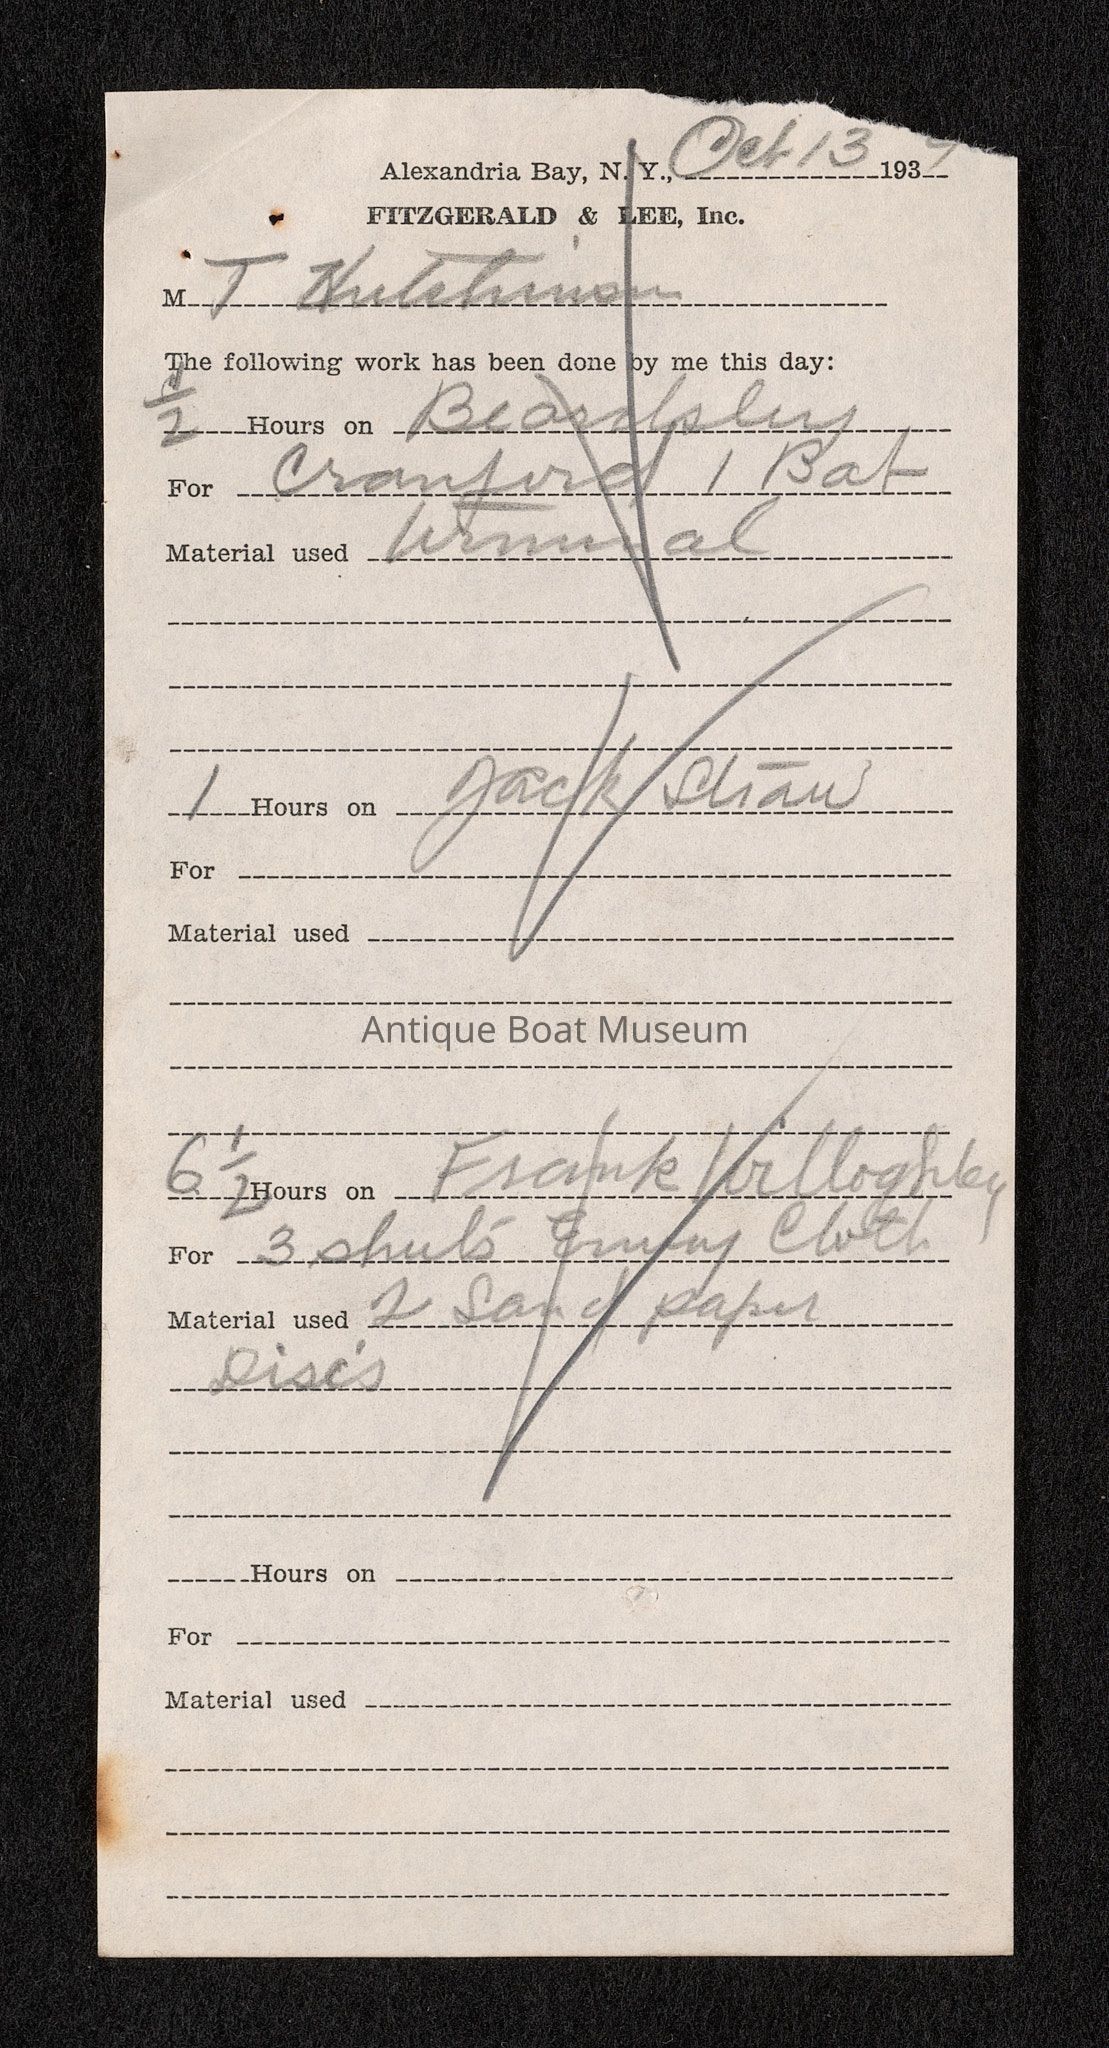 Alexandria Bay, N. Y., Oct 13 193
FITZGERALD & LEE, Inc.
M T Hutchinson
The following work has been done by me this day:
1/2 Hours on Beardsley
For Cranford 1 Bat
Material used terminal
1 Hours on Jack Straw
For
Material used
Antique Boat Museum
6 1/2 Hours on Frank Willoghby
For 3 shuts Emery Cloth
Material used 2 Sand paper
Disc's
Hours on
For
Material used